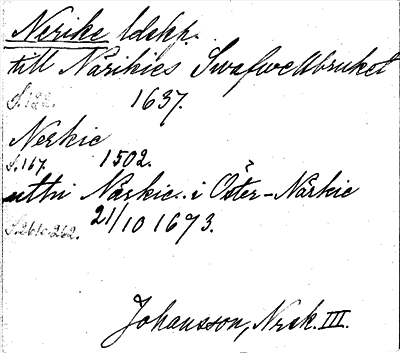 Nerike ldskp.
till Närikies Swafwellbruket
S. 122. 1637.
Nerkie
S. 167. 1502.
uttri Närkie.. i Öster-Närkie
S. 261 o. 262. 21/10 1673.
Johansson, Nrck. III.